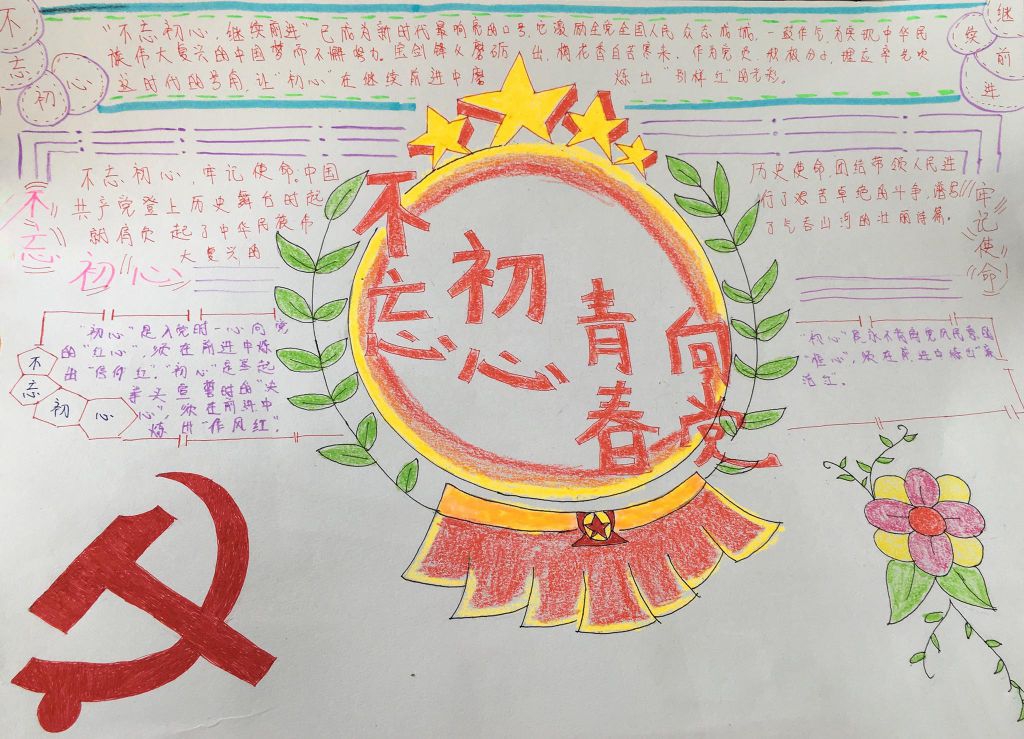 不忘初心
继续前进
"不忘初心,继续前进"已成为新时代最响亮的口号,它激励全党全国人民众志成城,一鼓作气,为实现中华民
族伟大复兴的中国梦而不懈努力。宝剑锋从磨砺出,梅花香自苦寒来。作为党员,积极分子,理应率先吹
这时代的号角,让"初心"在继续前进中磨炼出"别样红"的光彩。
不忘初心,牢记使命。中国
共产党登上历史舞台时起
就肩负起了中华民族伟
大复兴的
历史使命,团结带领人民进
行了艰苦卓绝的斗争,谱写
了气吞山河的壮丽诗篇。
不忘
初心
牢记使命
不忘
初心
青春
向党
"初心"是入党时一心向党
的"红心",须在前进中炼
出"信仰红"。"初心"是举起
拳头宣誓时的"决
心",须在前进中
炼出"作风红"。
不忘初心
"初心"是永不背离党和人民的
"恒心",须在前进中炼出